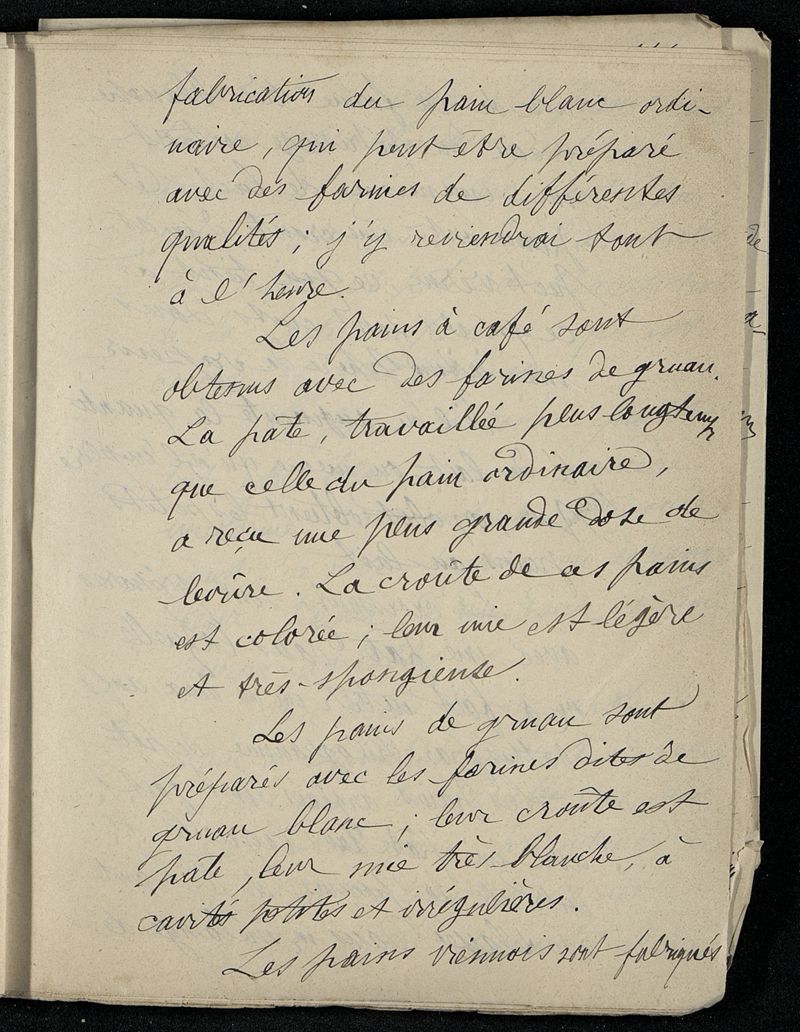 fabrication du pain blanc ordi-
naire, qui peut être préparé
avec des farines de différentes
qualités ; j'y reviendrai tout
à l'heure.
Les pains à café sont
obtenus avec des farines de gruau.
La pate, travaillée plus longtemps
que celle du pain ordinaire,
a reçu une plus grande dose de
levûre. La croûte de ces pains
est colorée ; leur mie est légère
et très-spongieuse.
Les pains de gruau sont
préparés avec les farines dites de
gruau blanc ; leur croûte est
pâle, leur mie très blanche, à
cavités petites et irrégulières.
Les pains viennois sont fabriqués